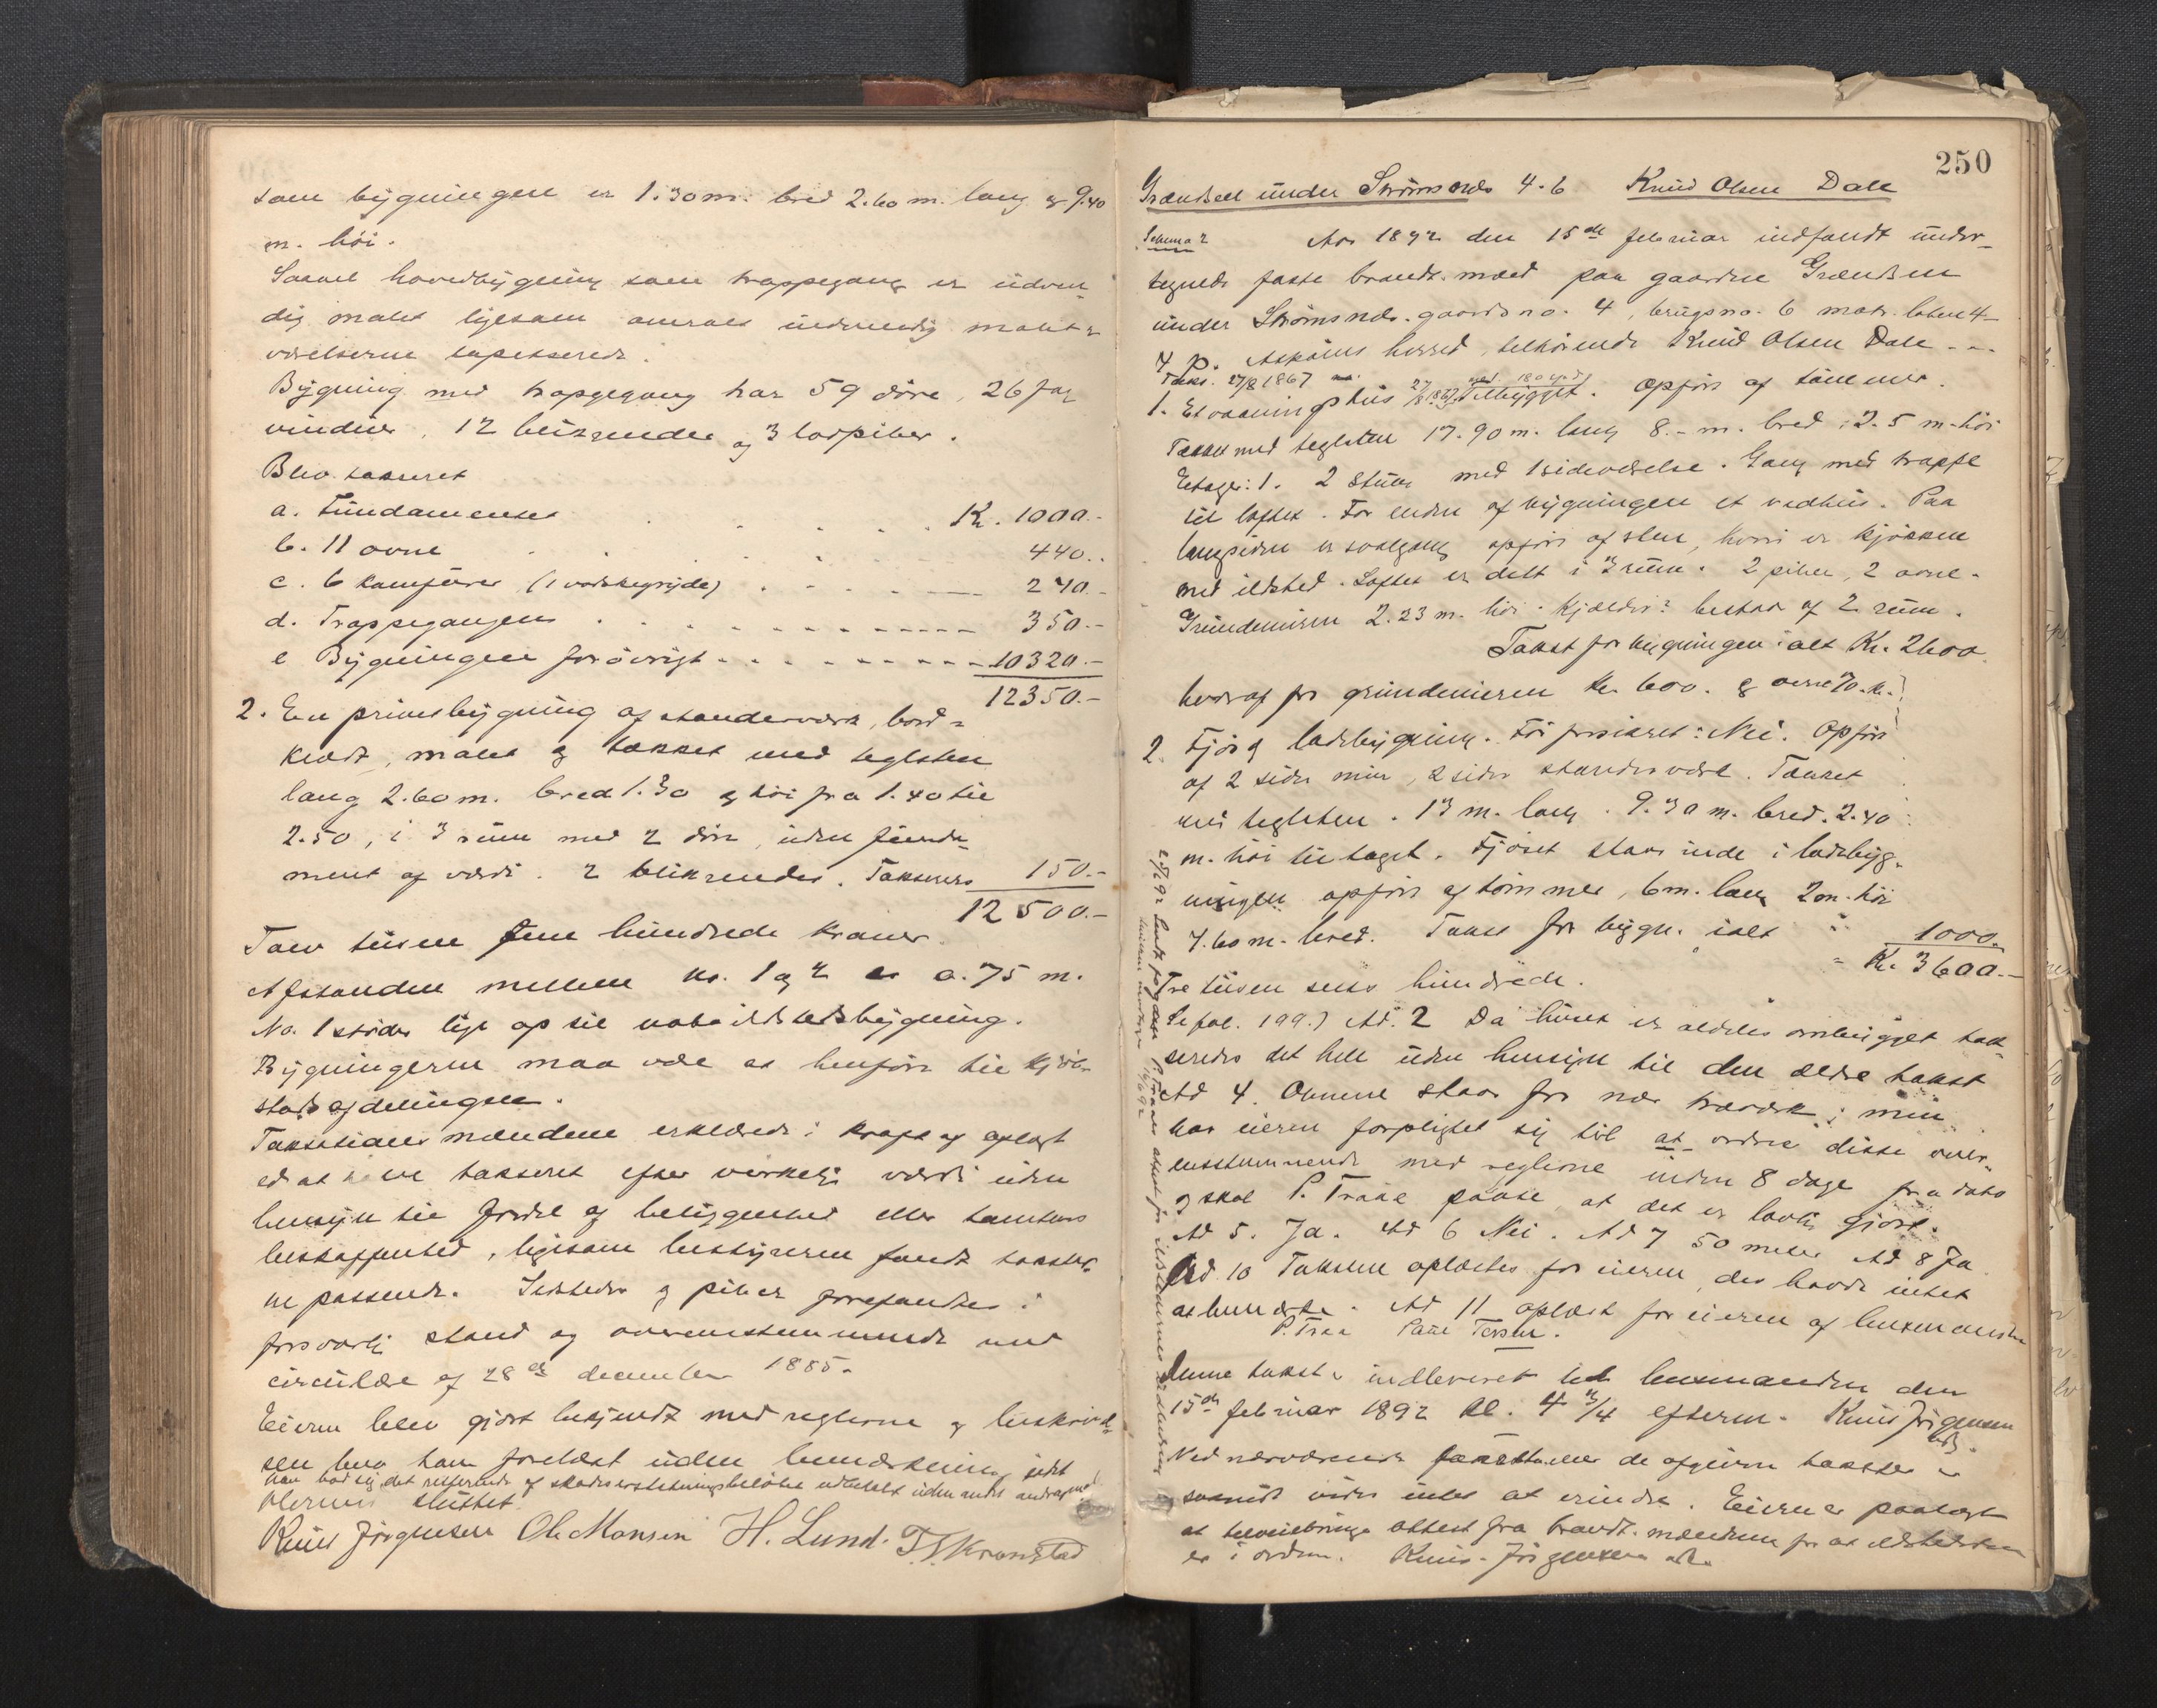 som bygningen er 1.30 m. bred 2.60 m. lang og 9.40
m. höi.
Saavel hovedbygning som trappegang er udven-
dig malet ligesom overalt indvendig malet &
værelserne tapetserede.
Bygning med trappegang har 59 döre, 26 fag
vinduer, 12 blikrender og 3 lodpiber.
Blev taxeret
a. Fundamentet Kr. 1000.-
b. 11 ovne 440..
c. 6 komfurer (1 vaskegryde) 240.-
d. Trappegangen 350.-
e Bygningen forövrigt 10320.-
12350.-
2. En privetbygning af standerværk, bord-
klædt, malet og tækket med teglsten
lang 2.60 m. bred 1.30 og höi fra 1.40 til
2.50, i 3 rum med 2 döre, uden funda-
ment af værdi. 2 blikrender. Takseres 150.-
12500.-
Tolv tusen fem hundrede kroner.
Afstanden mellem no. 1 og 2 er 0.75 m.
No. 1 stöder lige op til nabo ildstedsbygning.
Bygningerne maa være at henföre til kjöb-
stadsafdelingen.
Taksationsmændene erklærede i kraft af aflagt
ed at have takseret efter virkelig værdi uden
hensyn til fordel af beliggenhed eller tomtens
beskaffenhed, ligesom bestyreren fandt takster-
ne passende. Ildsteder og piber forefandtes i
forsvarlig stand og overensstemmende med
circulære af 28de december 1885.
Eieren blev gjort bekjendt med reglerne og beskrivel-
sen blev ham forelæst uden bemærkning, idet
han bad sig det resterende af skadeserstatningsbelöbet udbetalt uden andet andragende
Hermed sluttet.
Knud Jörgensen Ole Monsen H. Lund. T. Kronstad
250
Grændsen under Strömsnes 4.6 Knud Olsen Dale
Schema 2 Aar 1892 den 15de februar indfandt under-
tegnede faste brandt.mænd paa gaarden Grændsen
under Strömsnes. gaards no. 4, brugsno. 6 matr. loben 4
4 p. Asköens herred, tilhörende Knud Olsen Dale
Taks. 27/8 1867
1. Et vaaningshus tilbygget. Opfört af tömmer.
Tækket med teglsten 17.90 m. lang 8.- m. bred, 2.5 m. höi
Etager: 1. 2 stuer med 1 sideværelse. Gang med trappe
til loftet. For enden af bygningen et vedhus. Paa
langsiden er svalgang opfört af sten, hvori er kjökken
med ildsted. Loftet er delt i 3 rum. 2 piber, 2 ovne.
Grundmuren 2.23 m. höi. Kjælder: bestaar af 2 rum.
Takst for bygningen ialt Kr. 2600
hvoraf for grundmuren kr. 600. og ovne 70. kr.
2. Fjös og ladebygning. För forsikret: Nei. Opfört
af 2 sider mur, 2 sider standerværk. Tækket
med teglsten. 13 m. lang. 9.30 m. bred. 2.40
m. höi til taget. Fjöset staar inde i ladebyg-
ningen opfört af tömmer, 6 m. lang 2 m. höi
4.60 m. bred. Takst for bygn. ialt 1000.
Kr. 3600.-
Tre tusen seks hundrede.
Se fol. 199.) Ad. 2 Da huset er aldeles ombygget tak-
seredes det hele uden hensyn til den ældre takst
Ad 4. Ovnene staar for nær træværk; men
har eieren forpligtet sig til at ordne disse over-
ensstemmende med reglerne inden 8 dage fra dato
og skal P. Traae paase, at det er lovlig gjort.
Ad 5. Ja. Ad 6 Nei. Ad 7 50 meter Ad 8 Ja
Ad 10 Taksten oplæstes for eieren, der havde intet
at bemærke. Ad 11 oplæst for eieren af lensmanden
P. Traa Paul
Denne takst er indleveret til lensmanden den
15de februar 1892 kl. 4 3/4 efterm. Knud Jörgensen
Ved nærværende de afgivne takster er
saavidt vides intet at erindre. Eieren er paalagt
at tilveiebringe attest fra brandt.mændene for at ildstederne
er i orden. Knud Jörgensen